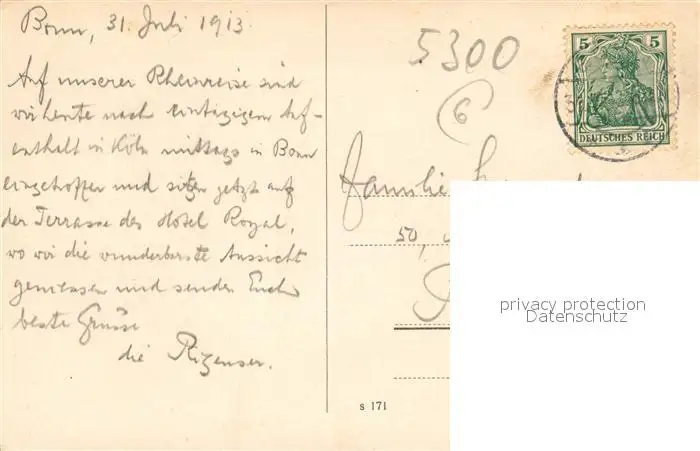 Bonn, 31. Juli 1913.
Auf unserer Rheinreise sind
wir heute nach eintägigem Auf-
enthalt in Köln mittags in Bonn
eingetroffen und sitzen jetzt auf
der Terrasse des Hotel Royal,
wo wir die wunderbarste Aussicht
geniessen und senden Euch
beste Grüsse
die
5300
6
Familie
50,
5 5
DEUTSCHES REICH
privacy protection
Datenschutz
s 171